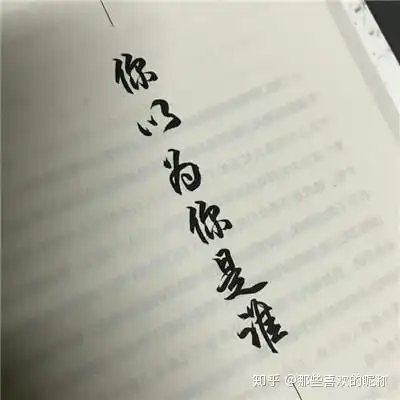 你以为你是谁
知乎 @那些喜欢的昵称